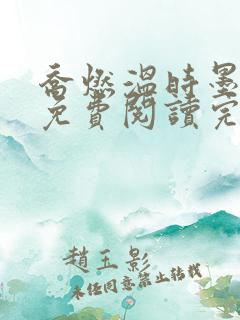 喬燃溫時墨
免費閱讀完
趙玉影
未经同意禁止转载